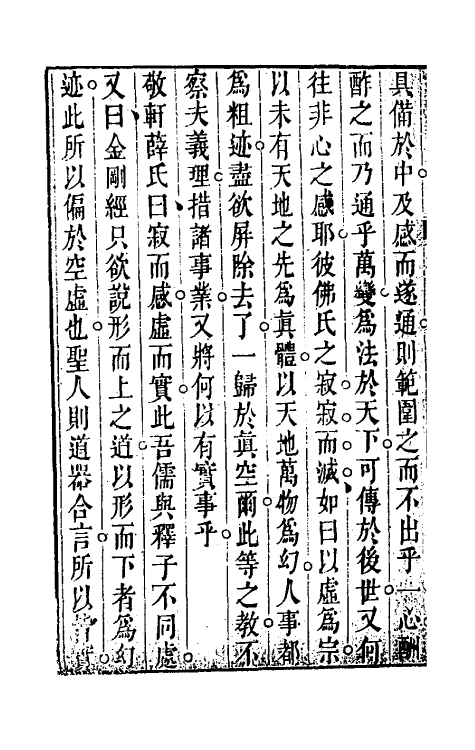 具備於中及感而遂通則範圍之而不出乎一心酬
酢之而乃通乎萬變為法於天下可傳於後世又何
往非心之感耶彼佛氏之寂寂而滅如曰以虛為宗
以未有天地之先為眞體以天地萬物為幻人事都
為粗迹盡欲屏除去了一歸於眞空爾此等之教不
察夫義理措諸事業又將何以有實事乎
敬軒薛氏曰寂而感虛而實此吾儒與釋子不同處
又曰金剛經只欲說形而上之道以形而下者為幻
迹此所以偏於空虛也聖人則道器合言所以皆實